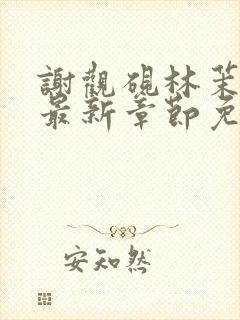 謝觀硯林茉
最新章節免
安知然